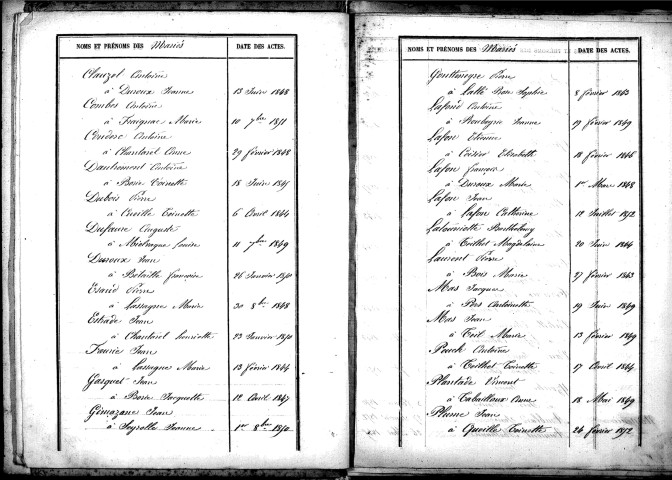 NOMS ET PRÉNOMS DES Mariés
DATE DES ACTES.
Clauzol Antoine
à Duroux Jeanne 13 Juin 1848
Combes Antoine
à Fraignac Marie 10 7bre 1851
Antoine
à Chantarel Anne 29 février 1848
Dautremont Antoine
à Borie Toinette 18 Juin 1845
Dubois Pierre
à Toinette 6 Avril 1844
Dufaure Auguste
à Louise 11 7bre 1849
Duroux Jean
à Bétaille françoise 26 Janvier 1850
Esarié Pierre
à Lassagne Marie 30 8bre 1848
Estrade Jean
à Chantarel henriette 23 Janvier 1850
Faurie Jean
à Lassagne Marie 13 février 1844
Gasquet Jean
à Borie Jacquette 12 Avril 1847
Gimazane Jean
à Seyrolle Jeanne 1er 8bre 1850
NOMS ET PRÉNOMS DES Mariés
DATE DES ACTES.
Pierre
à Lalli Rose Sophie 8 février 1843
Lafarie Antoine
à Jeanne 19 février 1849
Lafon Etienne
à Elisabeth 18 février 1846
Lafon françois
à Duroux Marie 1er Mars 1848
Lafon Jean
à Lafon Catherine 12 Juillet 1852
Barthélemy
à Teilhet Magdelaine 20 Juin 1844
Laurent Pierre
à Bois Marie 27 février 1843
Mas Jacques
à Bros Antoinette 19 Juin 1849
Mas Jean
à Teil Marie 13 février 1849
Pouch Antoine
à Teilhet Toinette 17 Avril 1844
Plantade Vincent
à Tabailloux Anne 18 Mai 1849
Plume Jean
à Queille Toinette 24 février 1852